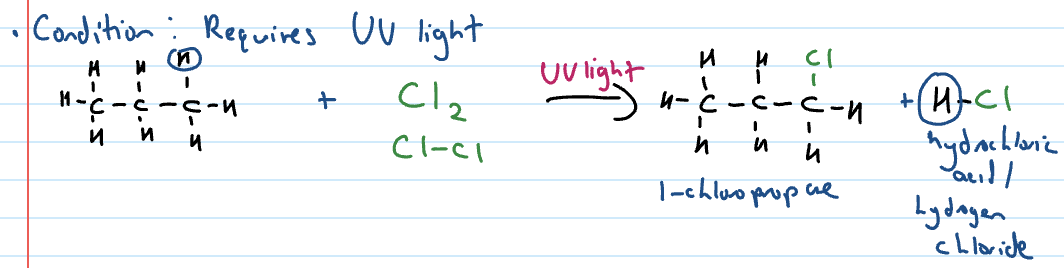 • Condition: Requires UV light
H H H
H-C-C-C-H + Cl2 UV light H-C-C-C-H + H-Cl
H H H
Cl-Cl
H H Cl
H H H
1-chloropropane
hydrochloric
acid/
hydrogen
chloride